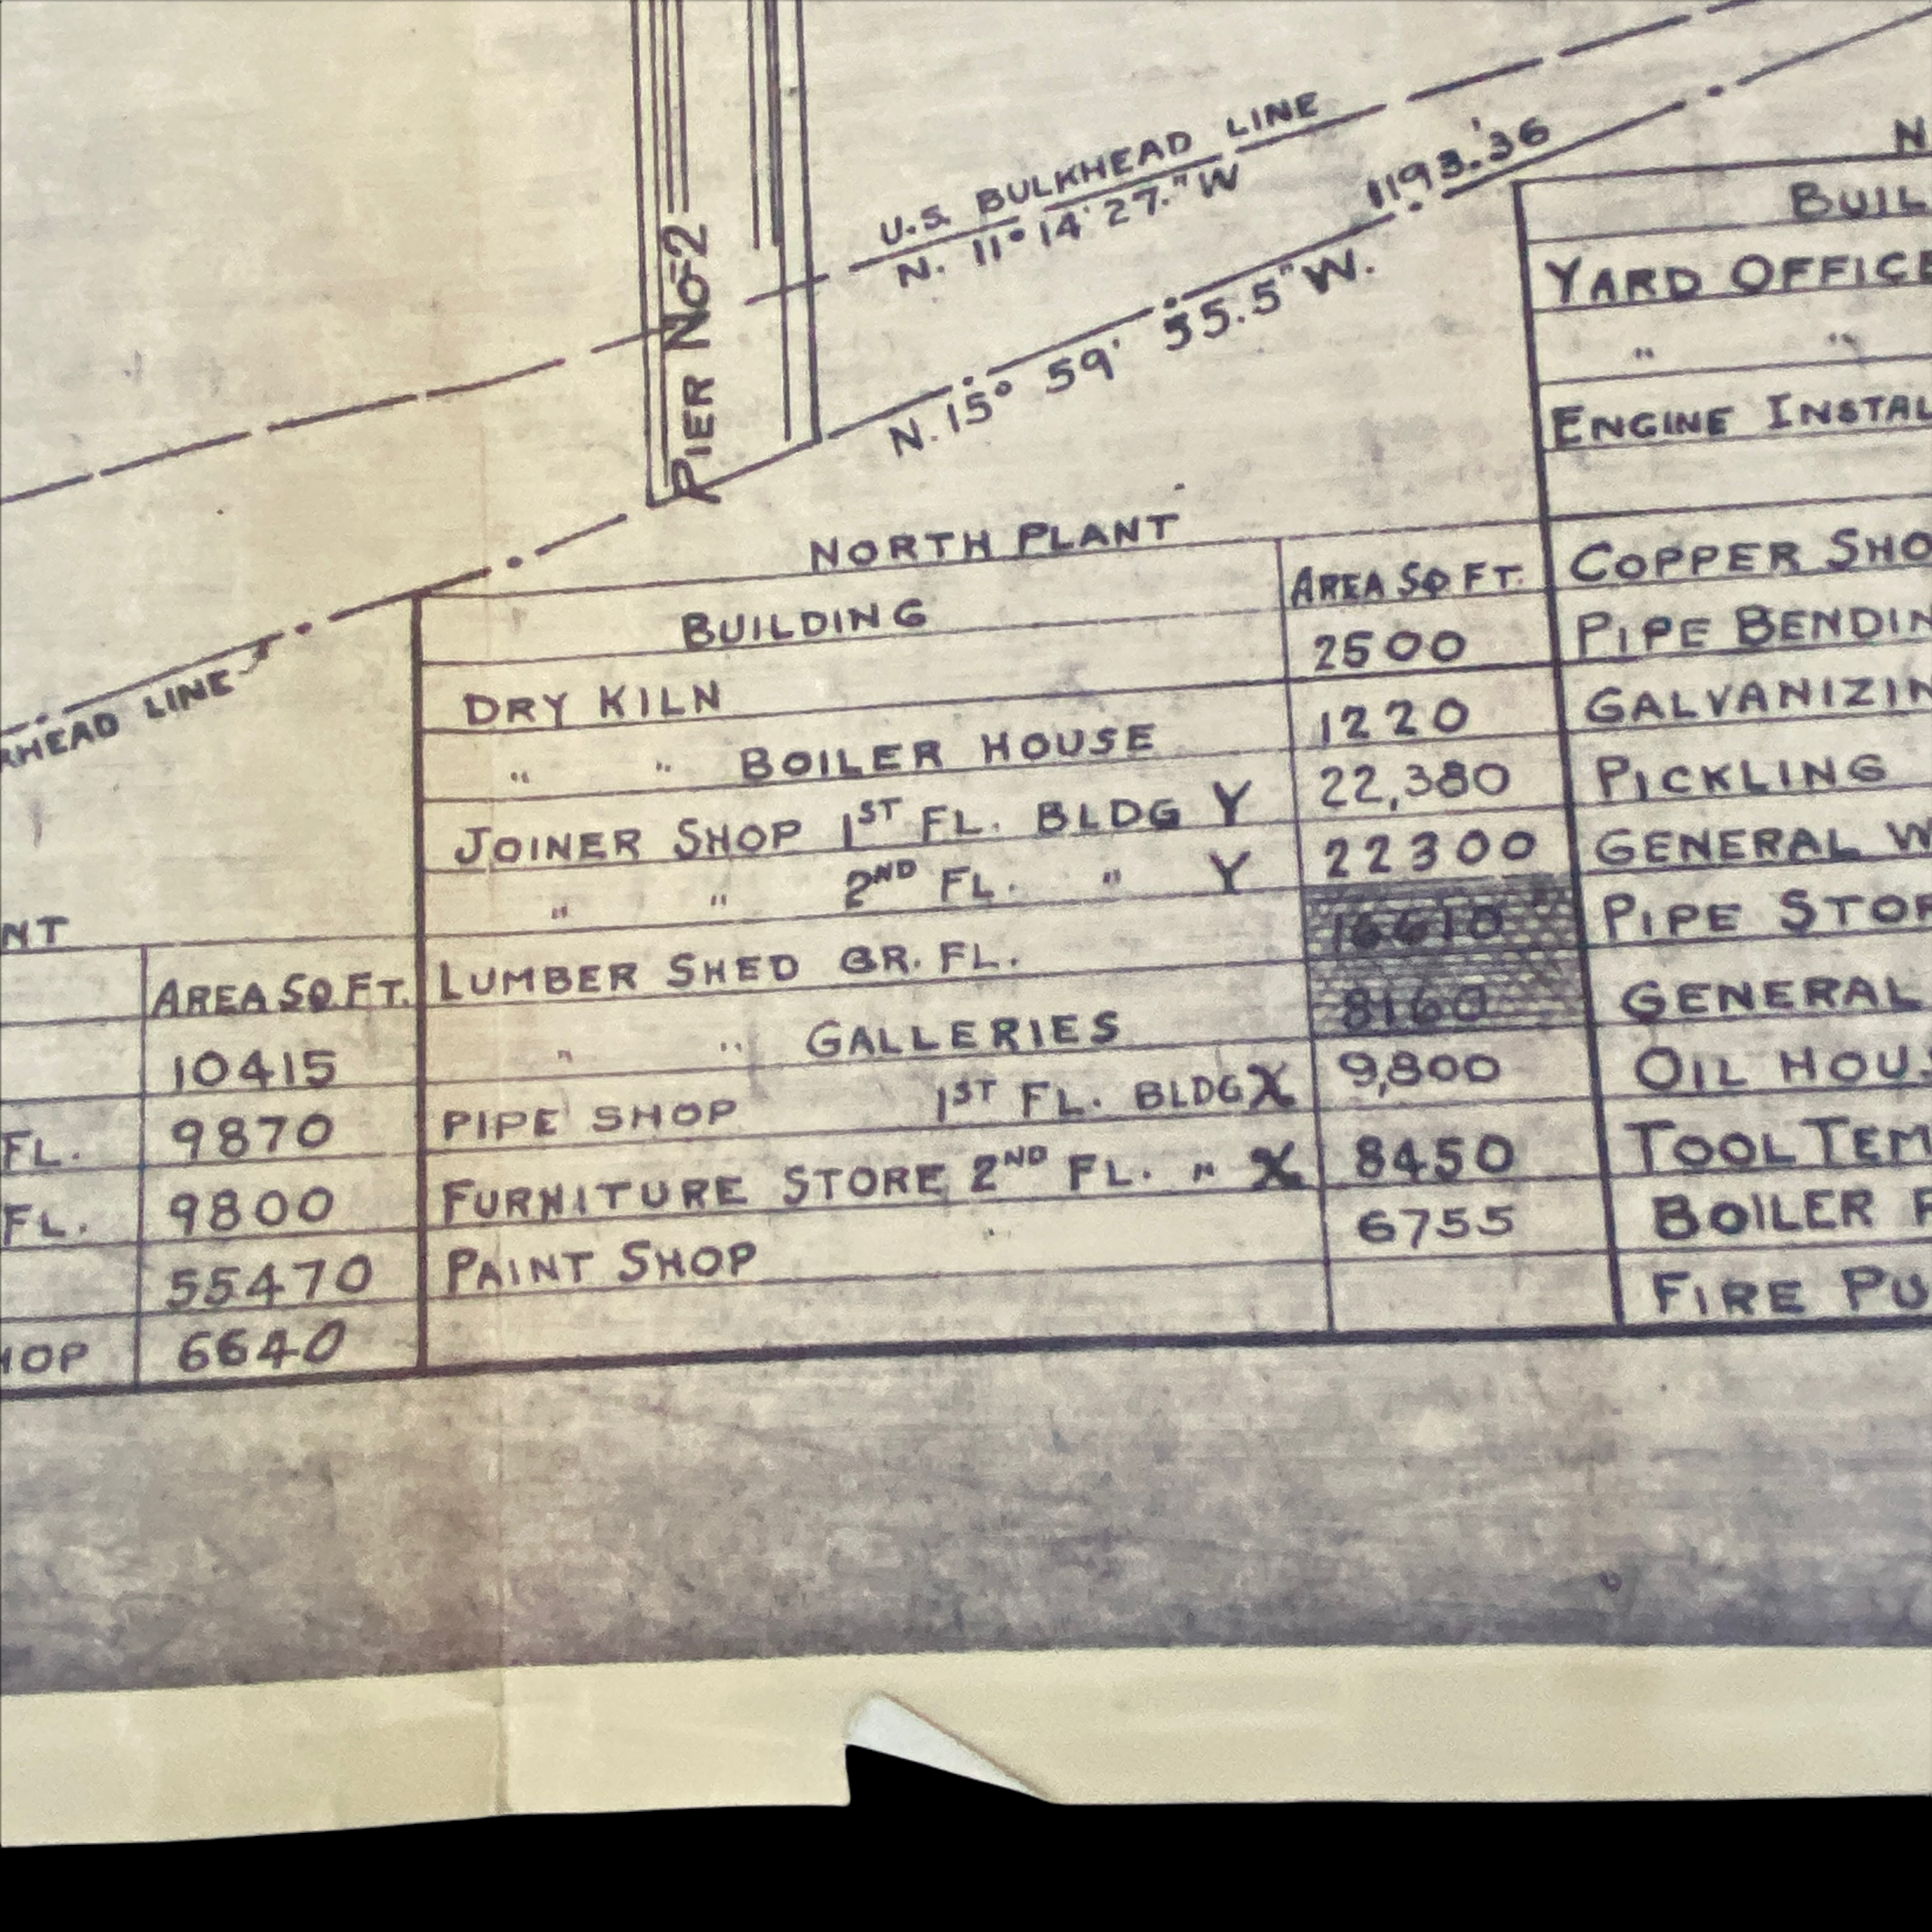 PIER No-2
U.S. BULKHEAD LINE
N. 11° 14' 27." W
1193.'36
N. 15° 59' 55.5" W.
HEAD LINE
NT
AREA SQ. FT.
10415
FL. 9870
FL. 9800
55470
HOP 6640
NORTH PLANT
BUILDING AREA SQ FT.
DRY KILN 2500
" " BOILER HOUSE 1220
JOINER SHOP 1ST FL. BLDG Y 22,380
" " 2ND FL. " Y 22300
LUMBER SHED GR. FL. 16610
" " GALLERIES 8160
PIPE SHOP 1ST FL. BLDG X 9,800
FURNITURE STORE 2ND FL. " X 8450
PAINT SHOP 6755
N
BUIL
YARD OFFICE
" "
ENGINE INSTAL
COPPER SHO
PIPE BENDIN
GALVANIZIN
PICKLING
GENERAL W
PIPE STOR
GENERAL
OIL HOUS
TOOL TEM
BOILER
FIRE PU